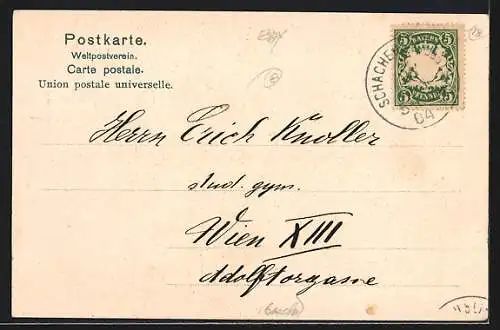 Postkarte.
Weltpostverein.
Carte postale.
Union postale universelle.
BAYERN
5 5
5 PFENNIG 5
SCHACHEN
04
Herrn Erich Knoller
stud. gym.
Wien XIII
Adolfstorgasse